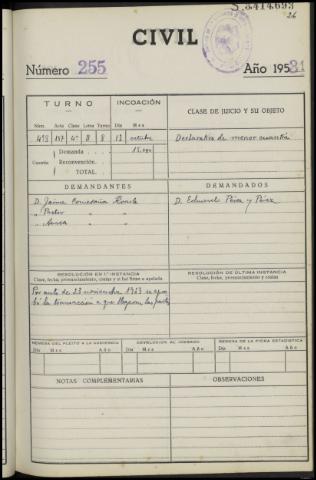 S.3414.693
26
CIVIL
Número 255 Año 1953
TURNO INCOACIÓN CLASE DE JUICIO Y SU OBJETO
Núm. Acto Clase Letra Turno Día Mes
8 8 12 octubre Declarativo de menor cuantía
Demanda
Cuantía: Reconvención.
TOTAL.
DEMANDANTES DEMANDADOS
D. Jaime D. Eduardo Pérez y Pérez
" Pastor " "
" " "
RESOLUCIÓN EN 1.ª INSTANCIA RESOLUCIÓN DE ÚLTIMA INSTANCIA
Clase, fecha, pronunciamiento, costas y si fué firme o apelada Clase, fecha, pronunciamiento y costas
Por auto de 23 noviembre 1953 se apro
bó la transacción a que llegaron las partes
REMESA DEL PLEITO A LA AUDIENCIA DEVOLUCIÓN AL JUZGADO REMESA DE LA FICHA ESTADÍSTICA
Día Mes Año Día Mes Año Día Mes Año
NOTAS COMPLEMENTARIAS OBSERVACIONES